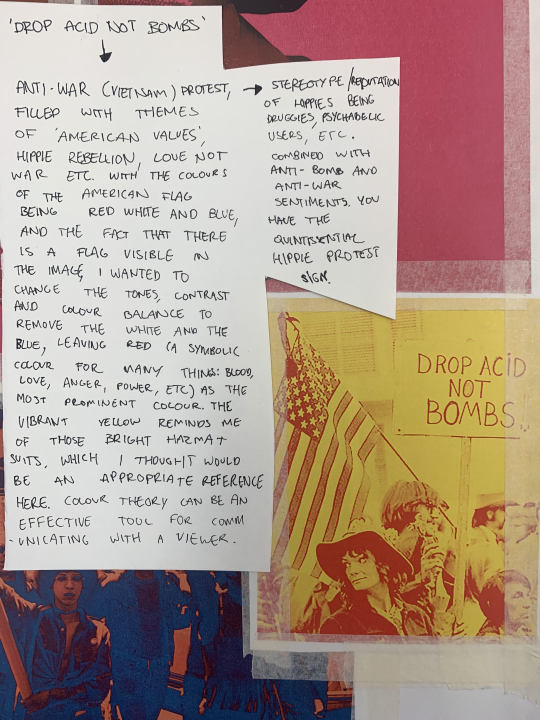 'DROP ACID NOT BOMBS'
ANTI-WAR (VIETNAM) PROTEST,
FILLED WITH THEMES
OF 'AMERICAN VALUES',
HIPPIE REBELLION, LOVE NOT
WAR ETC. WITH THE COLOURS
OF THE AMERICAN FLAG
BEING RED WHITE AND BLUE,
AND THE FACT THAT THERE
IS A FLAG VISIBLE IN
THE IMAGE, I WANTED TO
CHANGE THE TONES, CONTRAST
AND COLOUR BALANCE TO
REMOVE THE WHITE AND THE
BLUE, LEAVING RED (A SYMBOLIC
COLOUR FOR MANY THINGS: BLOOD,
LOVE, ANGER, POWER, ETC) AS THE
MOST PROMINENT COLOUR. THE
VIBRANT YELLOW REMINDS ME
OF THOSE BRIGHT HAZMAT
SUITS, WHICH I THOUGHT WOULD
BE AN APPROPRIATE REFERENCE
HERE. COLOUR THEORY CAN BE AN
EFFECTIVE TOOL FOR COMM
-UNICATING WITH A VIEWER.
STEREOTYPE/REPUTATION
OF HIPPIES BEING
DRUGGIES, PSYCHADELIC
USERS, ETC.
COMBINED WITH
ANTI-BOMB AND
ANTI-WAR
SENTIMENTS. YOU
HAVE THE
QUINTISENTIAL
HIPPIE PROTEST
SIGN.
DROP ACID
NOT
BOMBS..